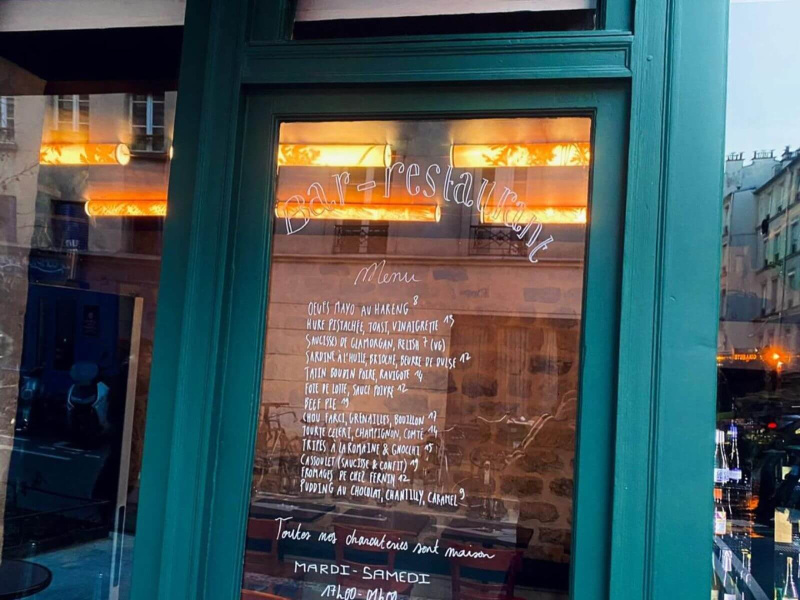 Bar-restaurant
Menu
OEUFS MAYO AU HARENG 8
HURE PISTACHÉE, TOAST, VINAIGRETTE 13
SAUCISSES DE GLAMORGAN, RELISH 7 (VG)
SARDINE À L'HUILE, BRIOCHE, BEURRE DE DULSE 12
TATIN BOUDIN POIRE, RAVIGOTE 14
FOIE DE LOTTE, SAUCE POIVRE 12
BEEF PIE 19
CHOU FARCI, GRENAILLES, BOUILLON 17
TOURTE CELERI, CHAMPIGNON, COMTÉ 14
TRIPES À LA ROMAINE & GNOCCHI 15
CASSOULET (SAUCISSE & CONFIT) 19
FROMAGES DE CHEZ FERNIN 12
PUDDING AU CHOCOLAT, CHANTILLY, CARAMEL 9
Toutes nos charcuteries sont maison
MARDI-SAMEDI
17h00-01h00